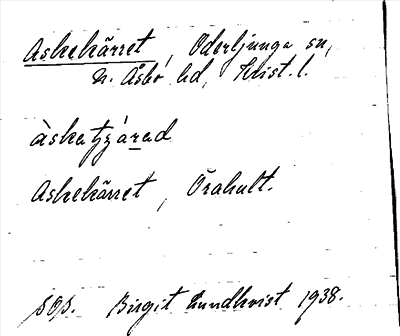 Askekärret, Oderljunga sn,
N. Åsbo hd, Krist. l.
àskatʃárad
Askekärret, Örahult.
SOS. Birgit Lundkvist 1938.